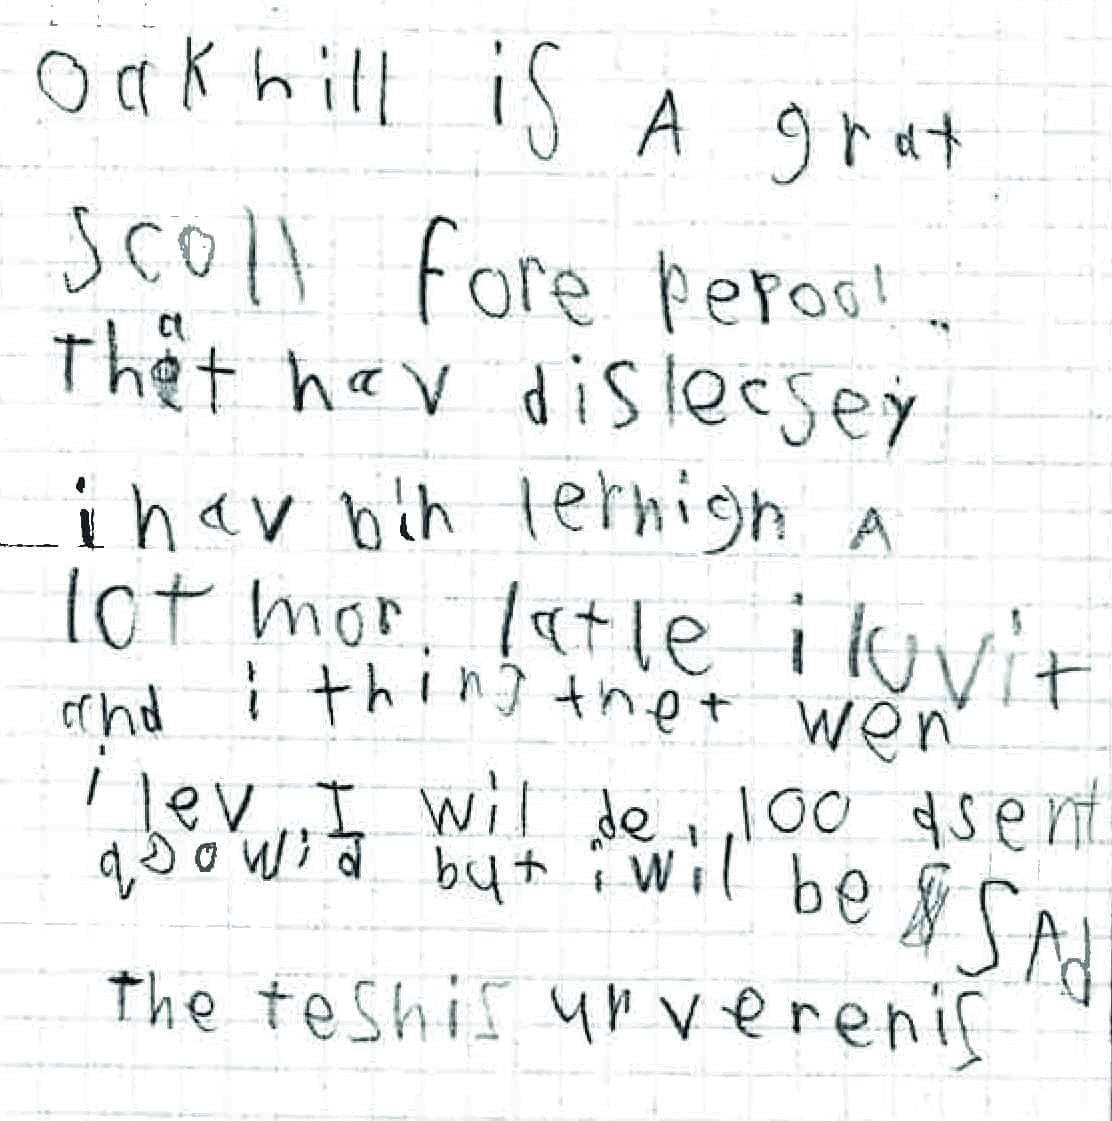 oakhill is A grat
scoll fore pepool.
that hav dislecsey
i hav bin lernign A
lot mor. latle i luv it
and i thing thet wen
i lev I wil de 100 dsent
qoowid but i wil be SAd
the teshis ur verenis